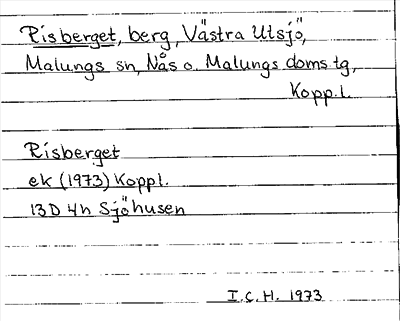 Risberget, berg, Västra Utsjö,
Malungs sn, Nås o. Malungs domstg,
Kopp.l.
Risberget
ek (1973) Koppl.
13D 4h Sjöhusen
I.C.H. 1973